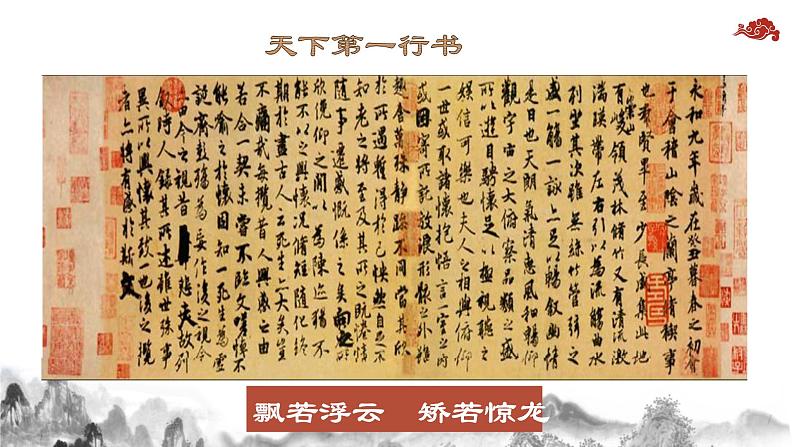 天下第一行书
永和九年歲在癸丑暮春之初會
于會稽山陰之蘭亭脩稧事
也羣賢畢至少長咸集此地
有崇山峻領茂林脩竹又有清流激
湍暎帶左右引以為流觴曲水
列坐其次雖無絲竹管弦之
盛一觴一詠亦足以暢叙幽情
是日也天朗氣清惠風和暢仰
觀宇宙之大俯察品類之盛
所以遊目騁懷足以極視聽之
娛信可樂也夫人之相與俯仰
一世或取諸懷抱悟言一室之內
或因寄所託放浪形骸之外雖
趣舍萬殊靜躁不同當其欣
於所遇蹔得於己怏然自足不
知老之將至及其所之既惓情
隨事遷感慨係之矣向之所
欣俛仰之閒以為陳迹猶不
能不以之興懷況脩短隨化終
期於盡古人云死生亦大矣豈
不痛哉每攬昔人興感之由
若合一契未嘗不臨文嗟悼不
能喻之於懷固知一死生為虛
誕齊彭殤為妄作後之視今
亦由今之視昔悲夫故列
叙時人錄其所述雖世殊事
異所以興懷其致一也後之攬
者亦將有感於斯文
飘若浮云 矫若惊龙